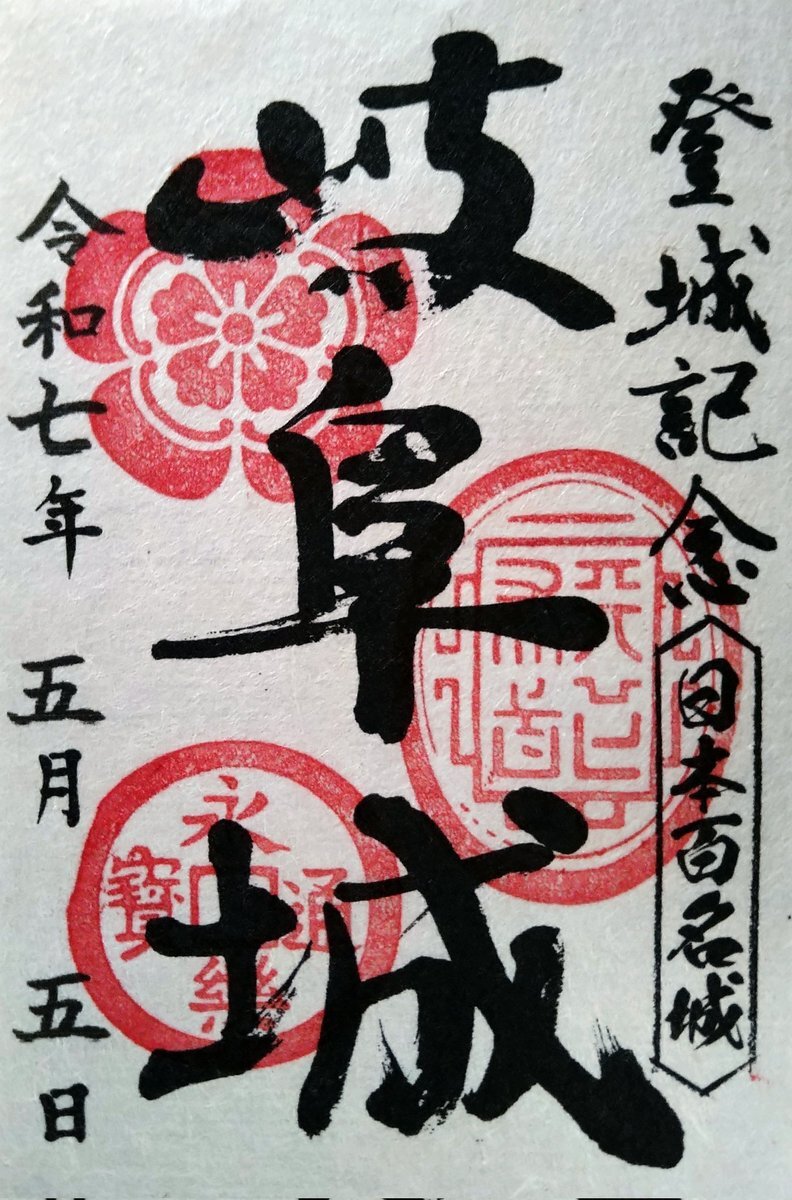 登城記念
日本百名城
岐阜城
永樂通寳
令和七年 五月 五日